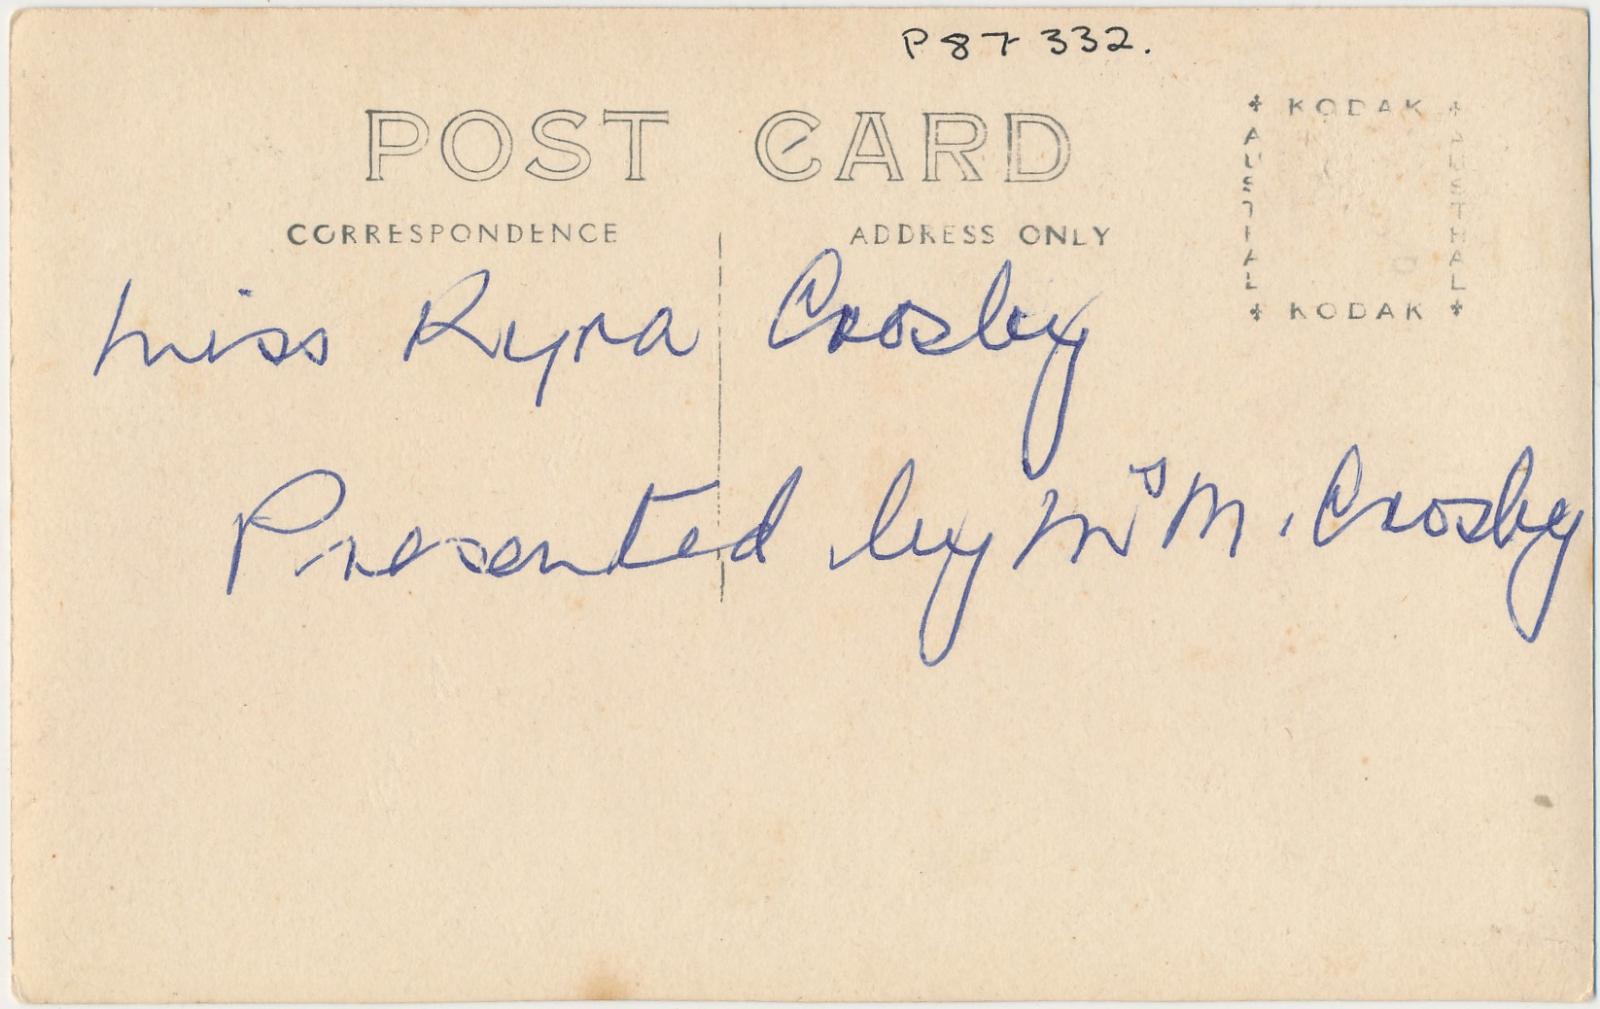 P87 332.
POST CARD
CORRESPONDENCE
ADDRESS ONLY
KODAK
AUSTRAL
AUSTRAL
KODAK
Miss Ryra Crosby
Presented by Ms M. Crosby